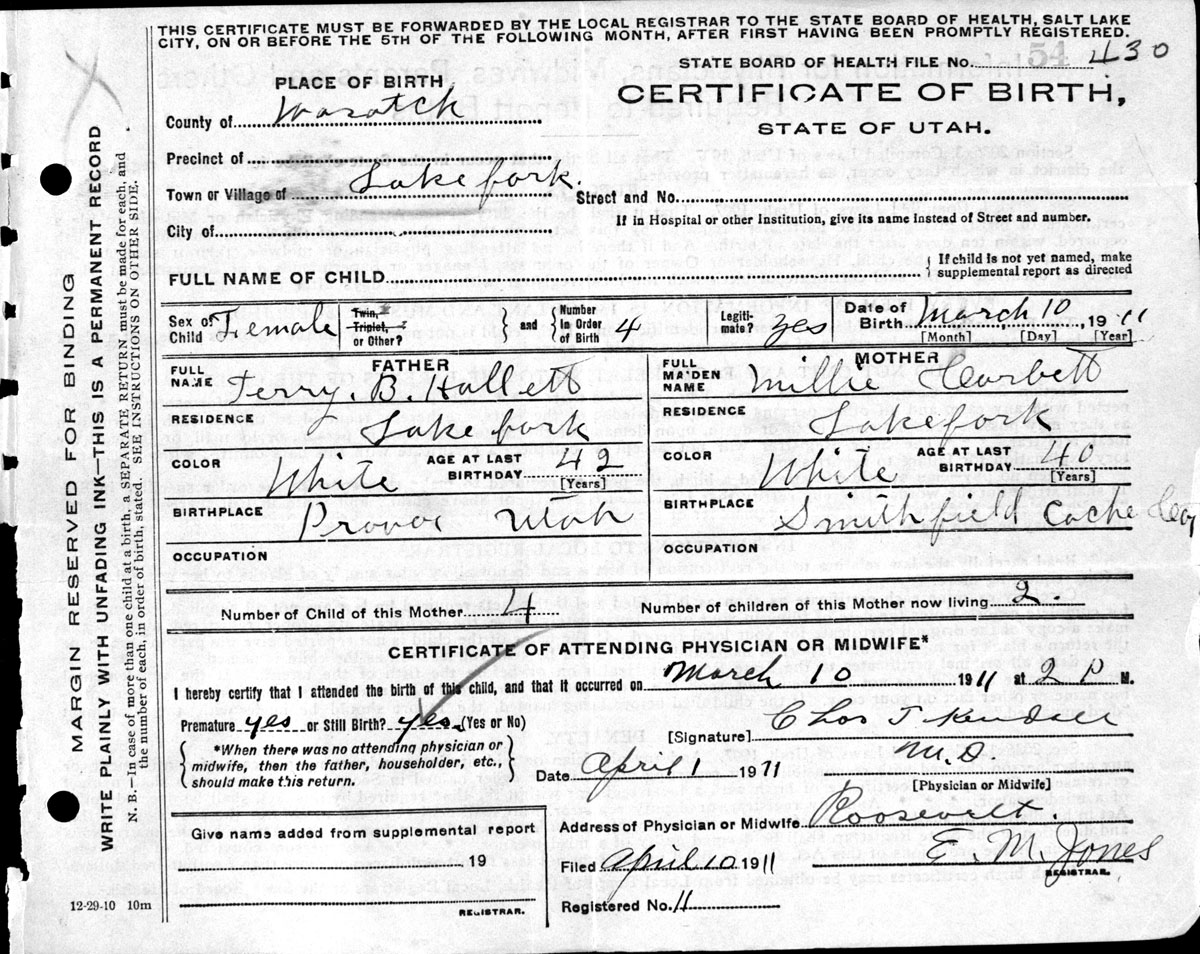 THIS CERTIFICATE MUST BE FORWARDED BY THE LOCAL REGISTRAR TO THE STATE BOARD OF HEALTH, SALT LAKE
CITY, ON OR BEFORE THE 5TH OF THE FOLLOWING MONTH, AFTER FIRST HAVING BEEN PROMPTLY REGISTERED.
STATE BOARD OF HEALTH FILE No. 54 430
PLACE OF BIRTH
CERTIFICATE OF BIRTH,
STATE OF UTAH.
County of Wasatch
Precinct of
Town or Village of Lakefork.
Street and No.
City of
If in Hospital or other Institution, give its name instead of Street and number.
FULL NAME OF CHILD
{ If child is not yet named, make
supplemental report as directed
Sex of Child Female
Twin, Triplet, or Other?
and { Number in Order of Birth 4
Legitimate? yes
Date of Birth March 10, 1911
[Month] [Day] [Year]
FATHER
FULL NAME Terry. B. Hallett
RESIDENCE Lakefork
COLOR White
AGE AT LAST BIRTHDAY 42
[Years]
BIRTHPLACE Provo Utah
OCCUPATION
MOTHER
FULL MAIDEN NAME Millie Corbett
RESIDENCE Lakefork
COLOR White
AGE AT LAST BIRTHDAY 40
[Years]
BIRTHPLACE Smithfield Cache
OCCUPATION
Number of Child of this Mother 4
Number of children of this Mother now living 2.
CERTIFICATE OF ATTENDING PHYSICIAN OR MIDWIFE*
I hereby certify that I attended the birth of this child, and that it occurred on March 10 1911 at 2 P M.
Premature yes or Still Birth? yes. (Yes or No)
{ *When there was no attending physician or
midwife, then the father, householder, etc.,
should make this return. }
[Signature] Chas J. Kendall
M.D.
[Physician or Midwife]
Date April 1 1911
Give name added from supplemental report
19
REGISTRAR.
Address of Physician or Midwife Roosevelt.
Filed April 10 1911
E. M. Jones
REGISTRAR.
Registered No. 11
12-29-10 10m
MARGIN RESERVED FOR BINDING
WRITE PLAINLY WITH UNFADING INK—THIS IS A PERMANENT RECORD
N. B.—In case of more than one child at a birth, a SEPARATE RETURN must be made for each, and
the number of each, in order of birth, stated. SEE INSTRUCTIONS ON OTHER SIDE.